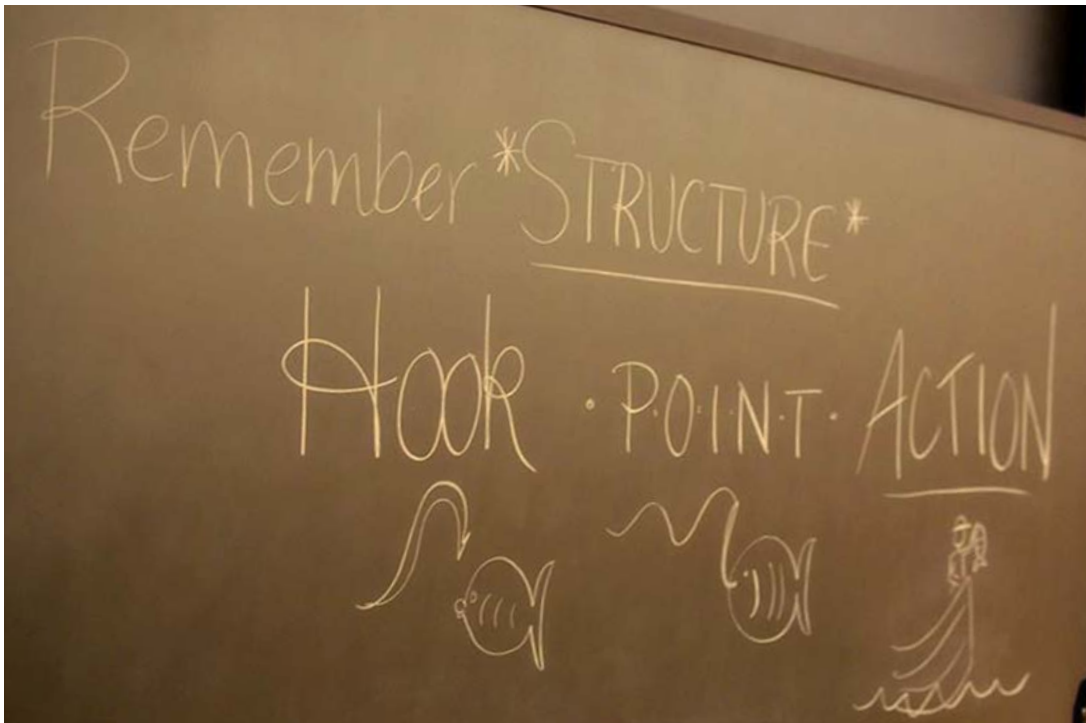 Remember *STRUCTURE*
HOOK · P·O·I·N·T· ACTION